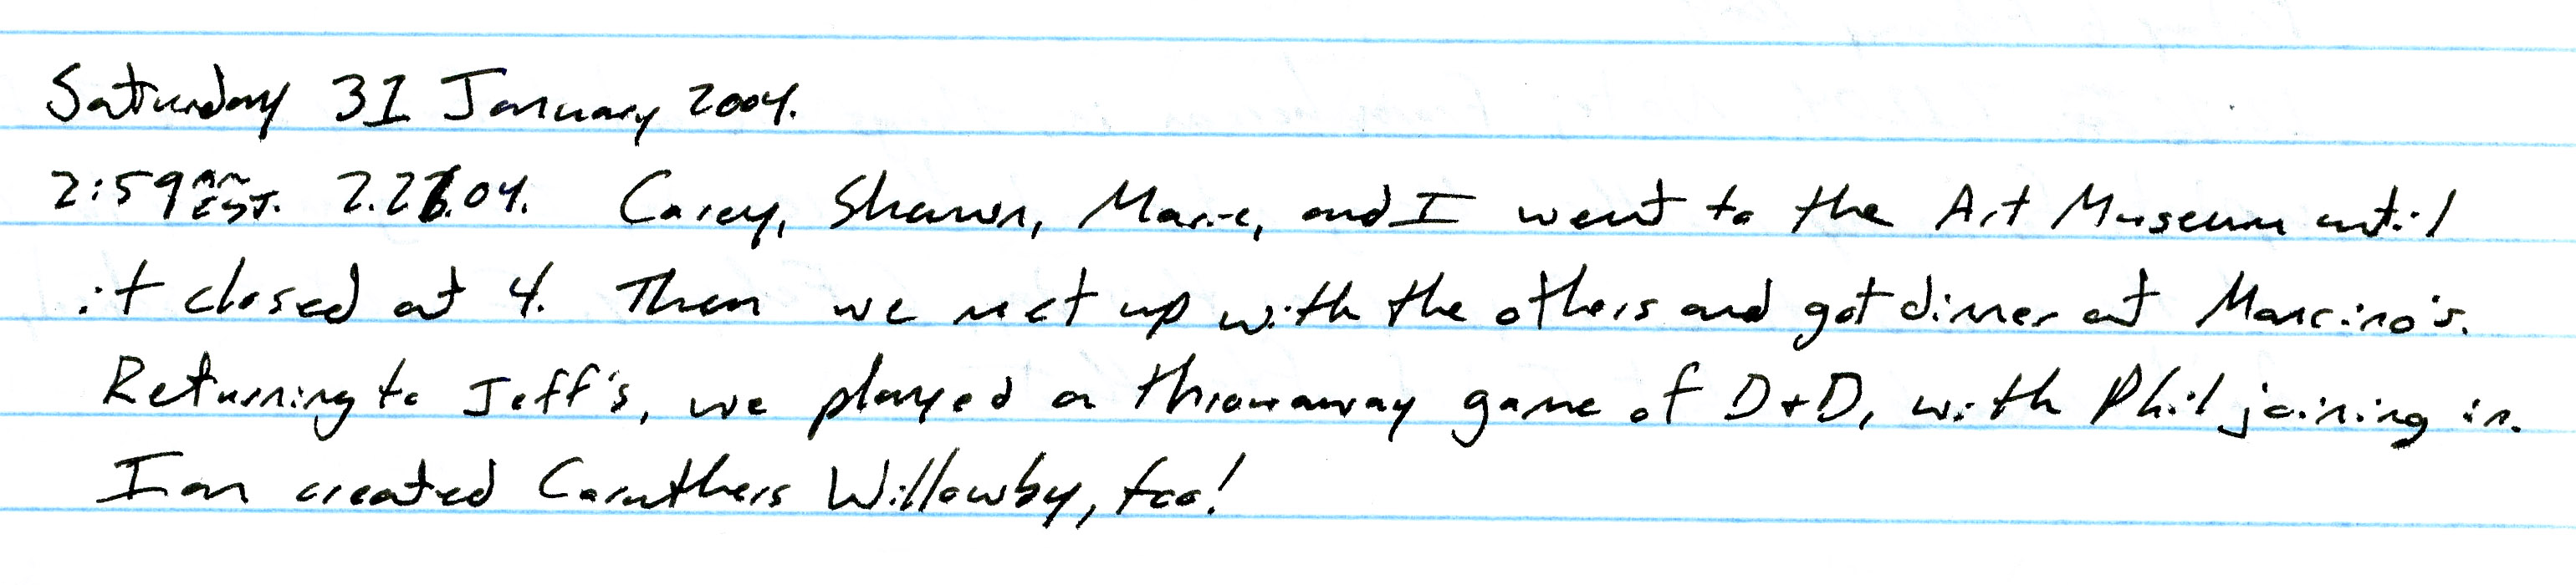 Saturday 31 January 2004.
2:59 AM EST. 2.27.04. Carey, Shawn, Marie, and I went to the Art Museum until
it closed at 4. Then we met up with the others and got dinner at Mancino's.
Returning to Jeff's, we played a throwaway game of D+D, with Phil joining in.
Ian created Caruthers Willowby, too!